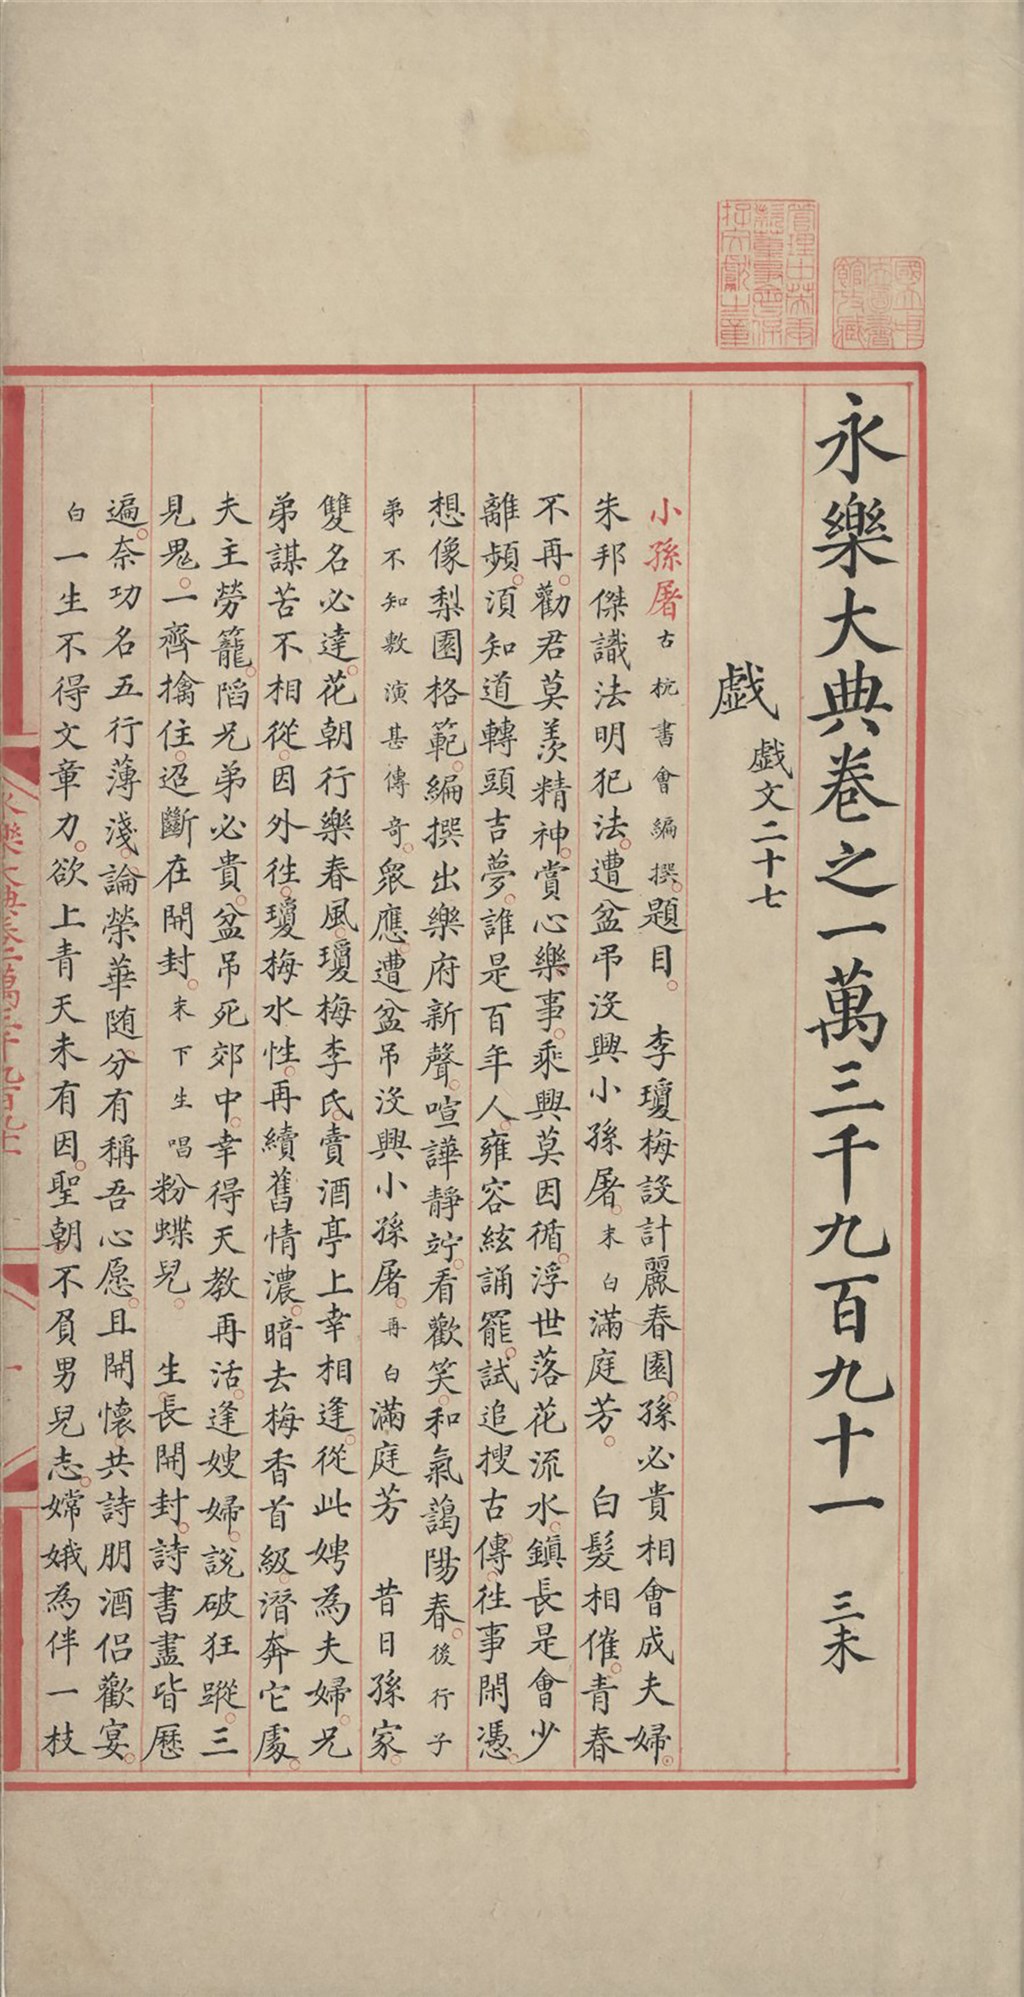 永樂大典卷之一萬三千九百九十一 三未
戯 戯文二十七
小孫屠古杭書會編撰。題目。 李瓊梅設計麗春園。孫必貴相會成夫婦。
朱邦傑識法明犯法。遭盆弔沒興小孫屠。末白滿庭芳。 白髮相催。青春
不再。勸君莫羡精神。賞心樂事。乘興莫因循。浮世落花流水。鎮長是會少
離頻。湏知道轉頭吉夢。誰是百年人。雍容絃誦罷。試追搜古傳。往事閑憑。
想像梨園格範。編撰出樂府新聲。喧譁靜竚。看歡笑。和氣藹陽春。後行子
弟不知敷演甚傳奇。衆應。遭盆吊沒興小孫屠。再白滿庭芳 昔日孫家。
雙名必達。花朝行樂春風。瓊梅李氏。賣酒亭上幸相逢。從此娉為夫婦。兄
弟謀苦不相從。因外往。瓊梅水性。再續舊情濃。暗去梅香首級。潛奔它處。
夫主勞籠。陷兄弟必貴。盆吊死郊中。幸得天教再活。逢嫂婦。說破狂蹤。三
見鬼。一齊擒住。迢斷在開封。末下生唱粉蝶兒。 生。長開封。詩書盡皆歷
遍。奈功名五行薄淺。論榮華隨分。有稱吾心愿。且開懷共詩朋酒侶歡宴。
白一生不得文章力。欲上青天未有因。聖朝。不負男兒志。嫦娥為伴一枝
國立中央圖書館收藏
管理中英庚款董事會保存文獻之章